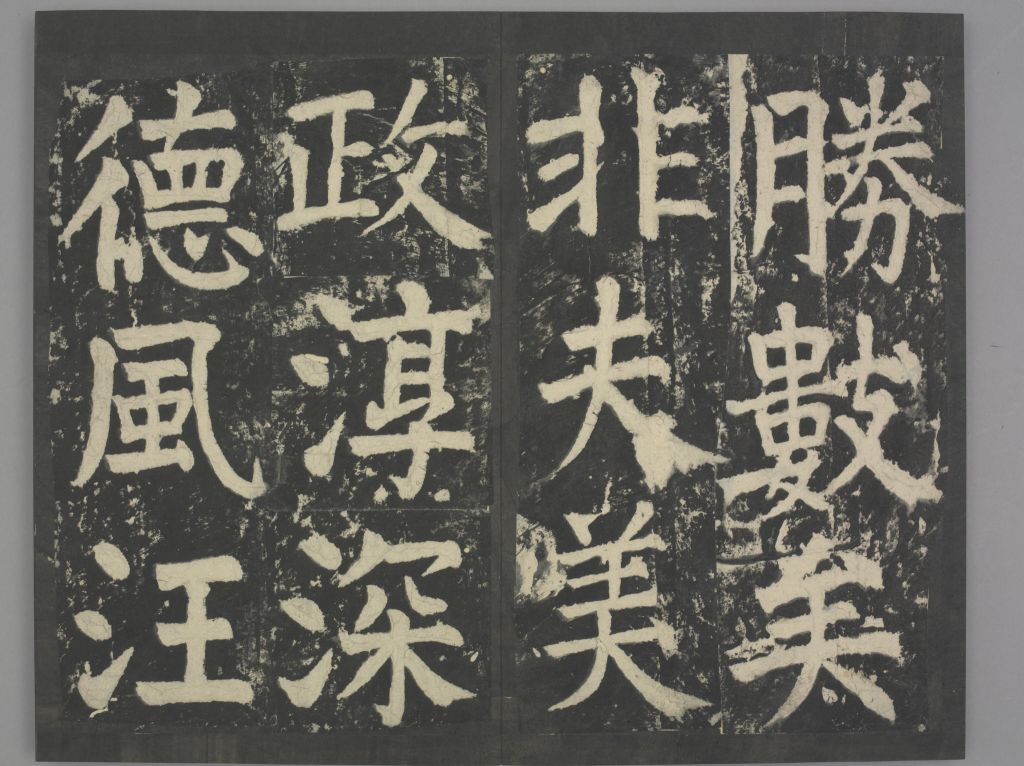 勝數矣
非夫美
政淳深
德風汪